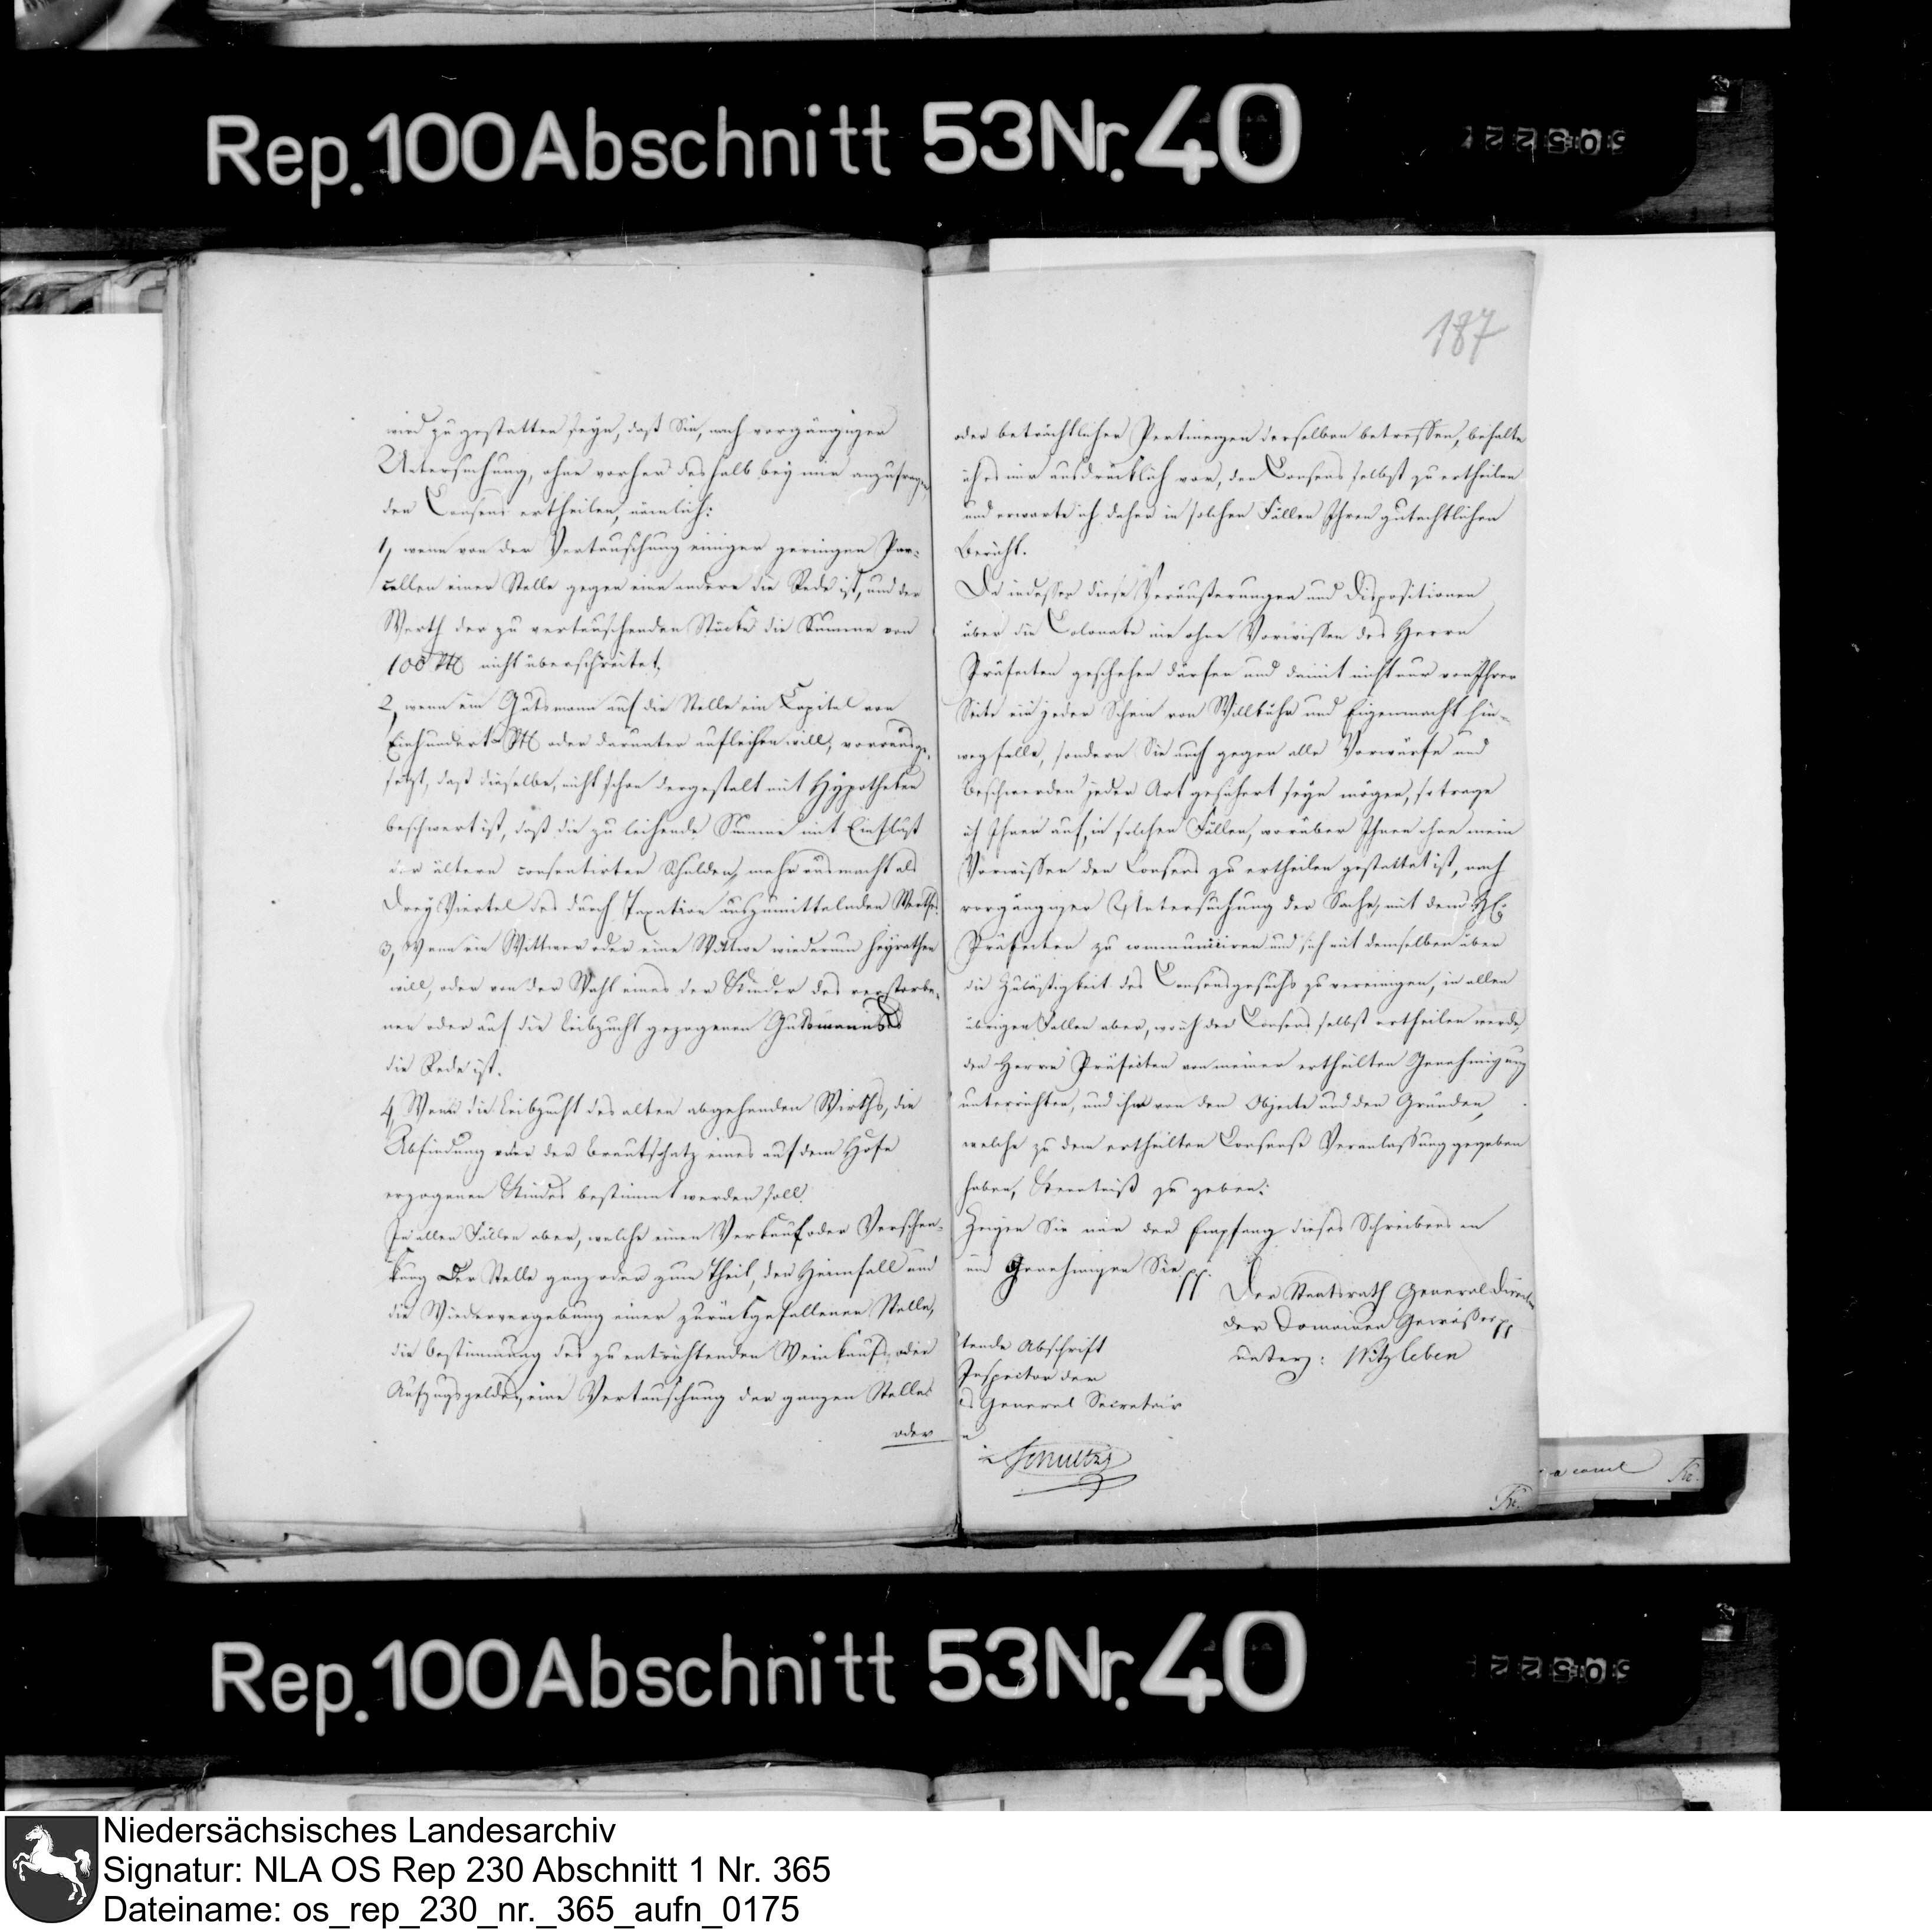 Rep. 100 Abschnitt 53 Nr. 40
50522
wird zu gestatten seyn, daß Sie, nach vorgängiger
Untersuchung, ohne vorher deshalb bey mir anzufragen
den Consens ertheilen, nämlich:
1, wenn von der Vertauschung einiger geringen Par-
cellen einer Stelle gegen eine andere die Rede ist, und der
Werth der zu vertauschenden Stücke die Summe von
100 Rt nicht überschreitet,
2, wenn ein Gutsmann auf die Stelle ein Capital von
Einhundert Rt oder darunter aufleihen will, vorausge-
setzt, daß dieselbe, nicht schon dergestalt mit Hypotheken
beschwert ist, daß die zu leihende Summe mit Einschluß
der ältern consentirten Schulden, mehr ausmacht als
Drey Viertel des durch Taxation auszumittelnden Werths.
3, Wenn ein Wittwer oder eine Wittwe wiederum heyrathen
will, oder von der Wahl eines der Kinder des verstorbe-
nen oder auf die Leibzucht gezogenen Gutsmannes
die Rede ist.
4, Wenn die Leibzucht des alten abgehenden Wirths, die
Abfindung oder der Brautschatz eines auf dem Hofe
erzogenen Kindes bestimmt werden soll.
In allen Fällen aber, welche einen Verkauf oder Verschen-
kung der Stelle ganz oder zum Theil, den Heimfall und
die Wiedervergebung einer zurückgefallenen Stelle,
die Bestimmung des zu entrichtenden Weinkaufs oder
Aufzugsgeldes, eine Vertauschung der ganzen Stelle
oder
187
oder beträchtlicher Pertinenzen derselben betreffen, behalte
ich es mir ausdrücklich vor, den Consens selbst zu ertheilen
und erwarte ich daher in solchen Fällen Ihren gutachtlichen
Bericht.
Da indessen diese Veräußerungen und Dispositionen
über die Colonate nie ohne Vorwissen des Herrn
Präfecten geschehen dürfen und damit nicht nur von Ihrer
Seite ein jeder Schein von Willkühr und Eigenmacht hin-
weg falle, sondern Sie auch gegen alle Vorwürfe und
Beschwerden jeder Art gesichert seyn mögen, so trage
ich Ihnen auf, in solchen Fällen, worüber Ihnen ohne mein
Vorwissen den Consens zu ertheilen gestattet ist, nach
vorgängiger Untersuchung der Sache, mit dem H.
Präfecten zu communiciren und sich mit demselben über
die Zuläßigkeit des Consensgesuchs zu vereinigen, in allen
übrigen Fällen aber, wo ich den Consens selbst ertheilen werde,
den Herrn Präfecten von meiner ertheilten Genehmigung
unterrichten, und ihm von dem Objecte und den Gründen,
welche zu dem ertheilten Consense Veranlassung gegeben
haben, Kenntniß zu geben.
Zeigen Sie mir den Empfang dieses Schreibens an
und Genehmigen Sie pp.
Der Staatsrath General Director
der Domainen Gewässer pp
unterz: Witzleben
tende Abschrift
Inspector der
General Secretair
Schultze
Rep. 100 Abschnitt 53 Nr. 40
50522
Niedersächsisches Landesarchiv
Signatur: NLA OS Rep 230 Abschnitt 1 Nr. 365
Dateiname: os_rep_230_nr._365_aufn_0175